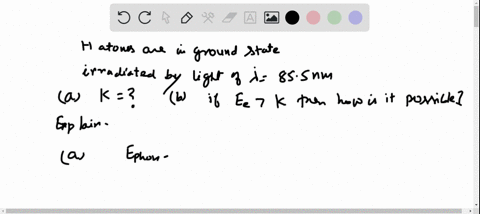 H atoms are in ground state
irradiated by light of λ = 85.5 nm
(a) K = ? (b) if Ee > K then how is it possible?
Explain.
(a) Ephou-